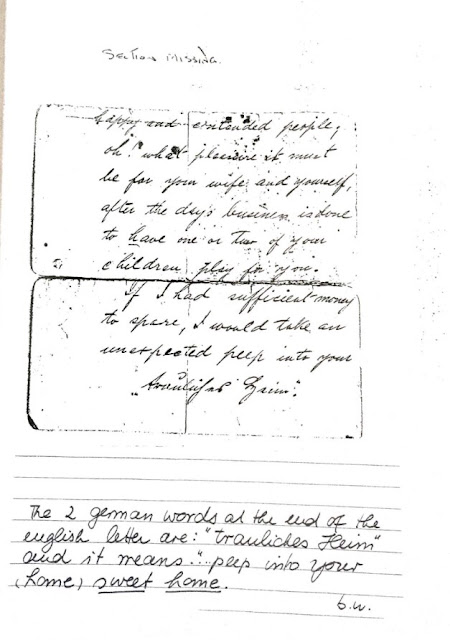 Section Missing.
happy and contended people;
oh! what pleasure it must
be for your wife and yourself,
after the day's business is done
to have one or two of your
children play for you.
If I had sufficient money
to spare, I would take an
unexpected peep into your
„trauliches Heim".
The 2 german words at the end of the
english letter are: "trauliches Heim"
and it means "... peep into your
(home) sweet home.
b.w.